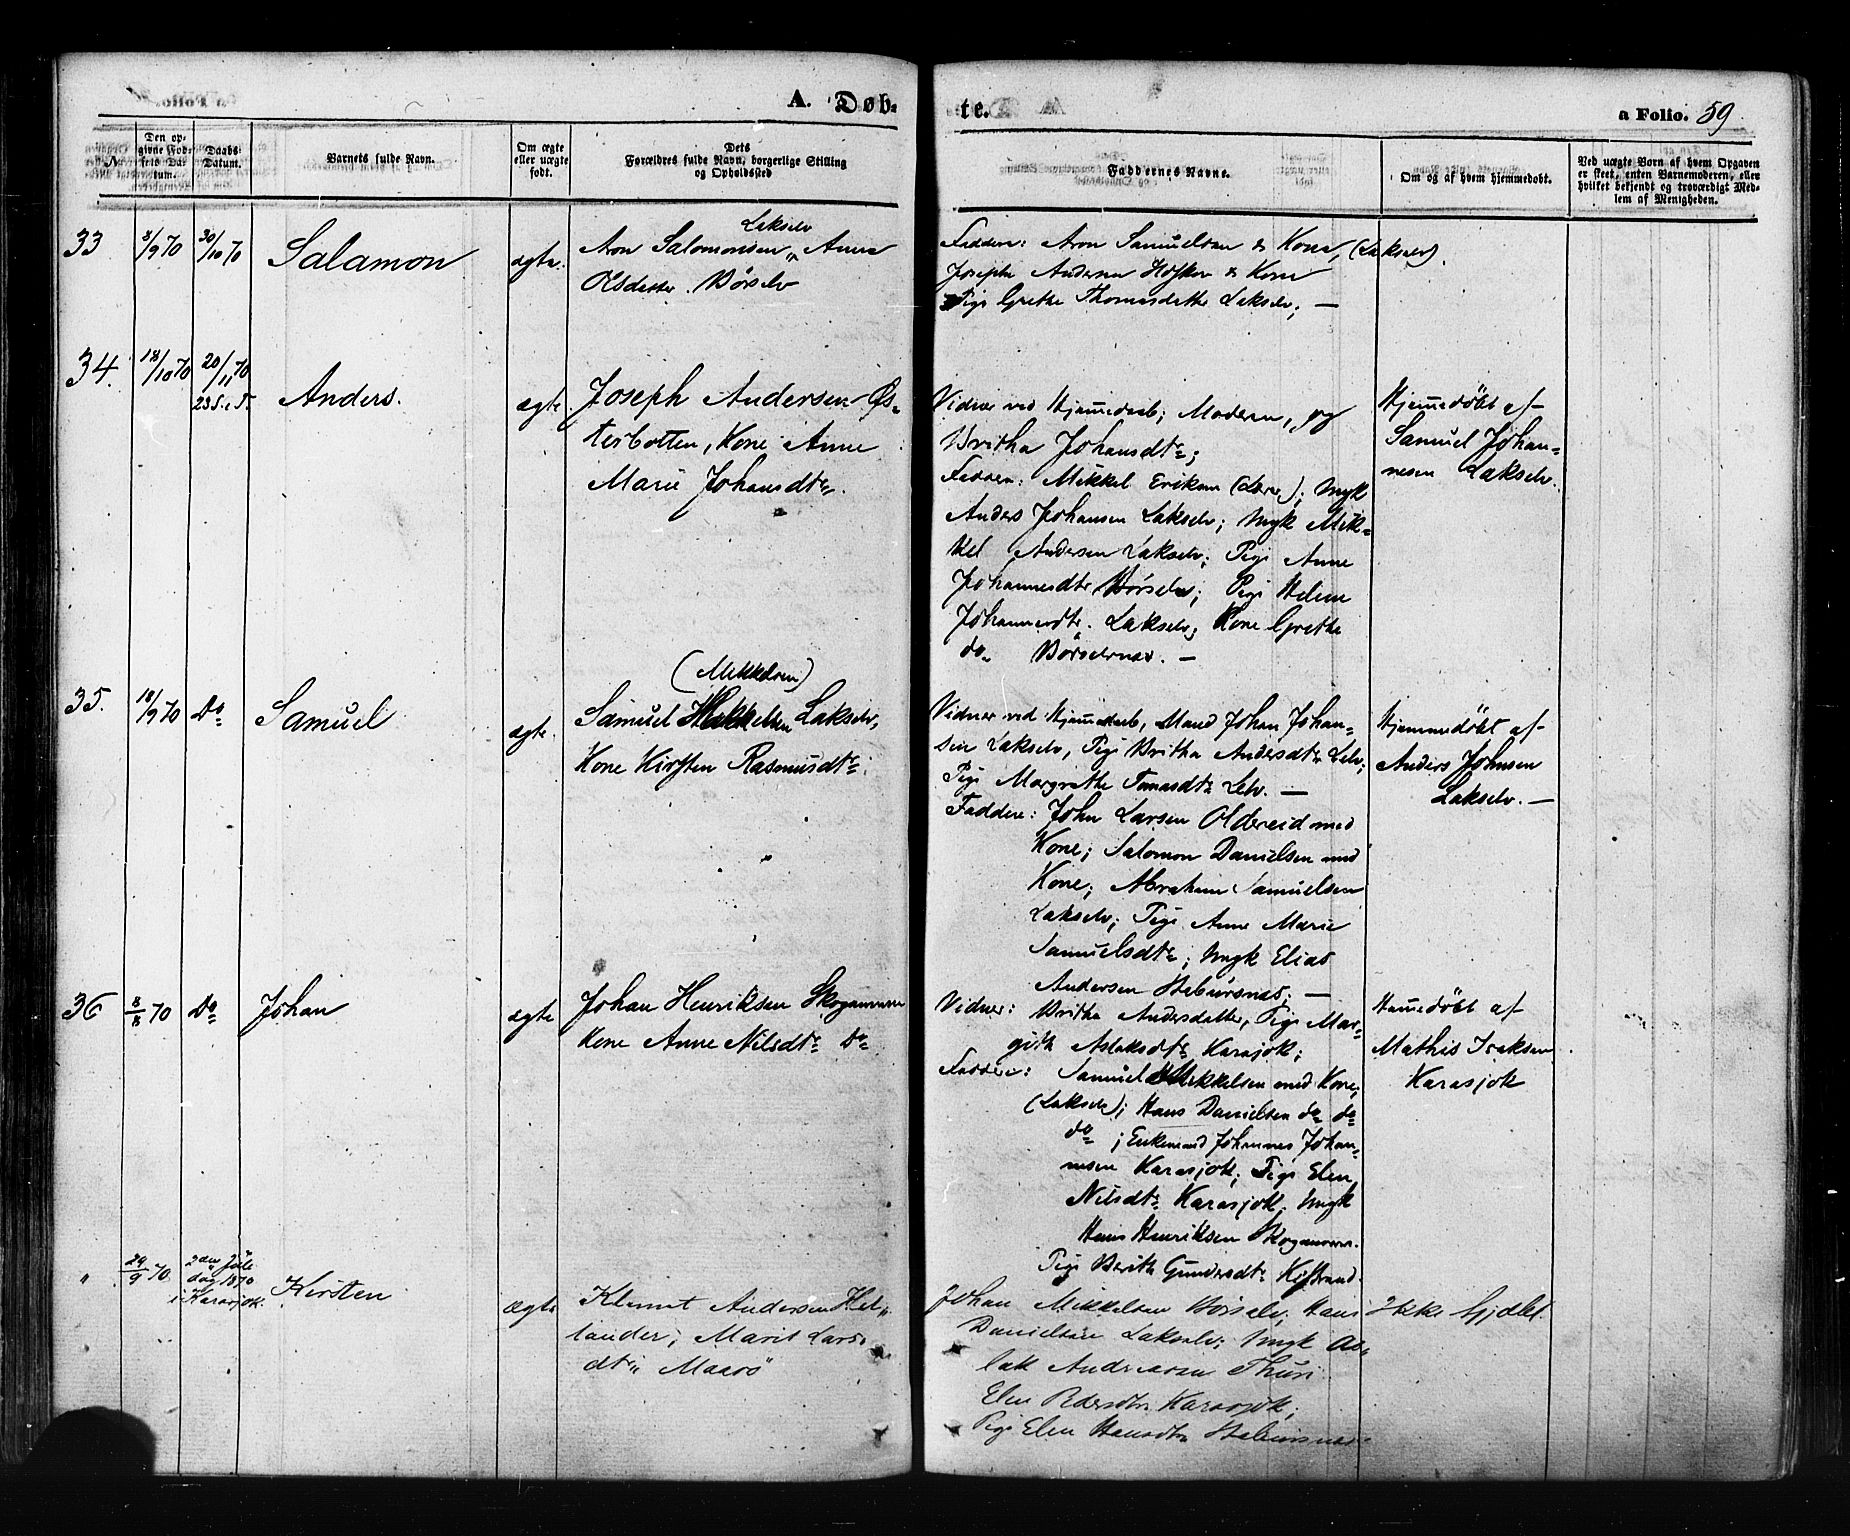 A. Døb-
te.
a Folio. 59.
N.
Den op-
givne Fød-
sels Da-
tum.
Daabs-
Datum.
Barnets fulde Navn.
Om ægte
eller uægte
født.
Dets
Forældres fulde Navn, borgerlige Stilling
og Opholdssted
Faddernes Navne.
Om og af hvem hjemmedøbt.
Ved uægte Børn af hvem Opgaven
er skeet, enten Barnemoderen, eller
hvilket bekjendt og troværdigt Med-
lem af Menigheden.
33 8/9 70 30/10 70 Salamon ægte.
Lakselv
Aron Salomonsen „ Anna
Olsdatter. Børselv
Faddere: Aron Samuelsen & Kone, (Lakselv).
Joseph Andersen & Kone
Pige Grethe Thomasdatter Lakselv; —
34. 18/10 70 20/11 70
23 S. e. T.
Anders. ægte.
Joseph Andersen Øs-
terbotten, Kone Anne
Marie Johansdtr.
Vidner ved Hjemmedaab; Moderen, og
Britha Johansdtr;
Faddere: Mikkel Eriksen; Ungk
Anders Johansen Lakselv; Ungk Mik-
kel Andersen Lakselv; Pige Anne
Johannesdtr Børselv; Pige Helene
Johannesdtr. Lakselv; Kone Grethe
do Børselvnes. —
Hjemmedøbt af
Samuel Johan-
nesen Lakselv.
35. 18/9 70 Do Samuel ægte.
(Mikkelsen)
Samuel Mikkelsen Lakselv,
Kone Kirsten Rasmusdtr.
Vidner ved Hjemmedaab, Mand Johan Johan-
sen Lakselv, Pige Britha Andersdtr Lelv;
Pige Margrethe Tomasdtr Lelv. —
Faddere: John Larsen Oldereid med
Kone; Salomon Danielsen med
Kone; Abraham Samuelsen
Lakselv; Pige Anne Marie
Samuelsdtr; Ungk Elias
Andersen Stabursnes; —
Hjemmedøbt af
Anders Johnsen
Lakselv. —
36 8/8 70 Do Johan ægte
Johan Henriksen Skoganvarre
Kone Anne Nilsdtr Do
Vidner: Britha Andersdatter, Pige Mar-
gith Aslaksdtr Karasjok;
Faddere: Samuel Mikkelsen med Kone,
(Lakselv); Hans Danielsen do do
do; Enkemand Johannes Johan-
nesen Karasjok; Pige Elen
Nilsdtr Karasjok; Ungk
Hans Henriksen Skoganvarre.
Pige Berith Gundersdtr Kistrand.
Hjemmedøbt af
Mathis Isaksen
Karasjok
" 29/9 70
2den Jule-
dag 1870
i Karasjok.
Kirsten ægte
Klemet Andersen Het-
lander; Marit Lars-
dtr Maasø
Johan Mikkelsen Børselv; Hans
Danielsen Lakselv; Ungk As-
lak Andersen Thuri
Elen Pedersdtr Karasjok;
Pige Elen Hansdtr Stabursnes.
Ikke hjdbt.